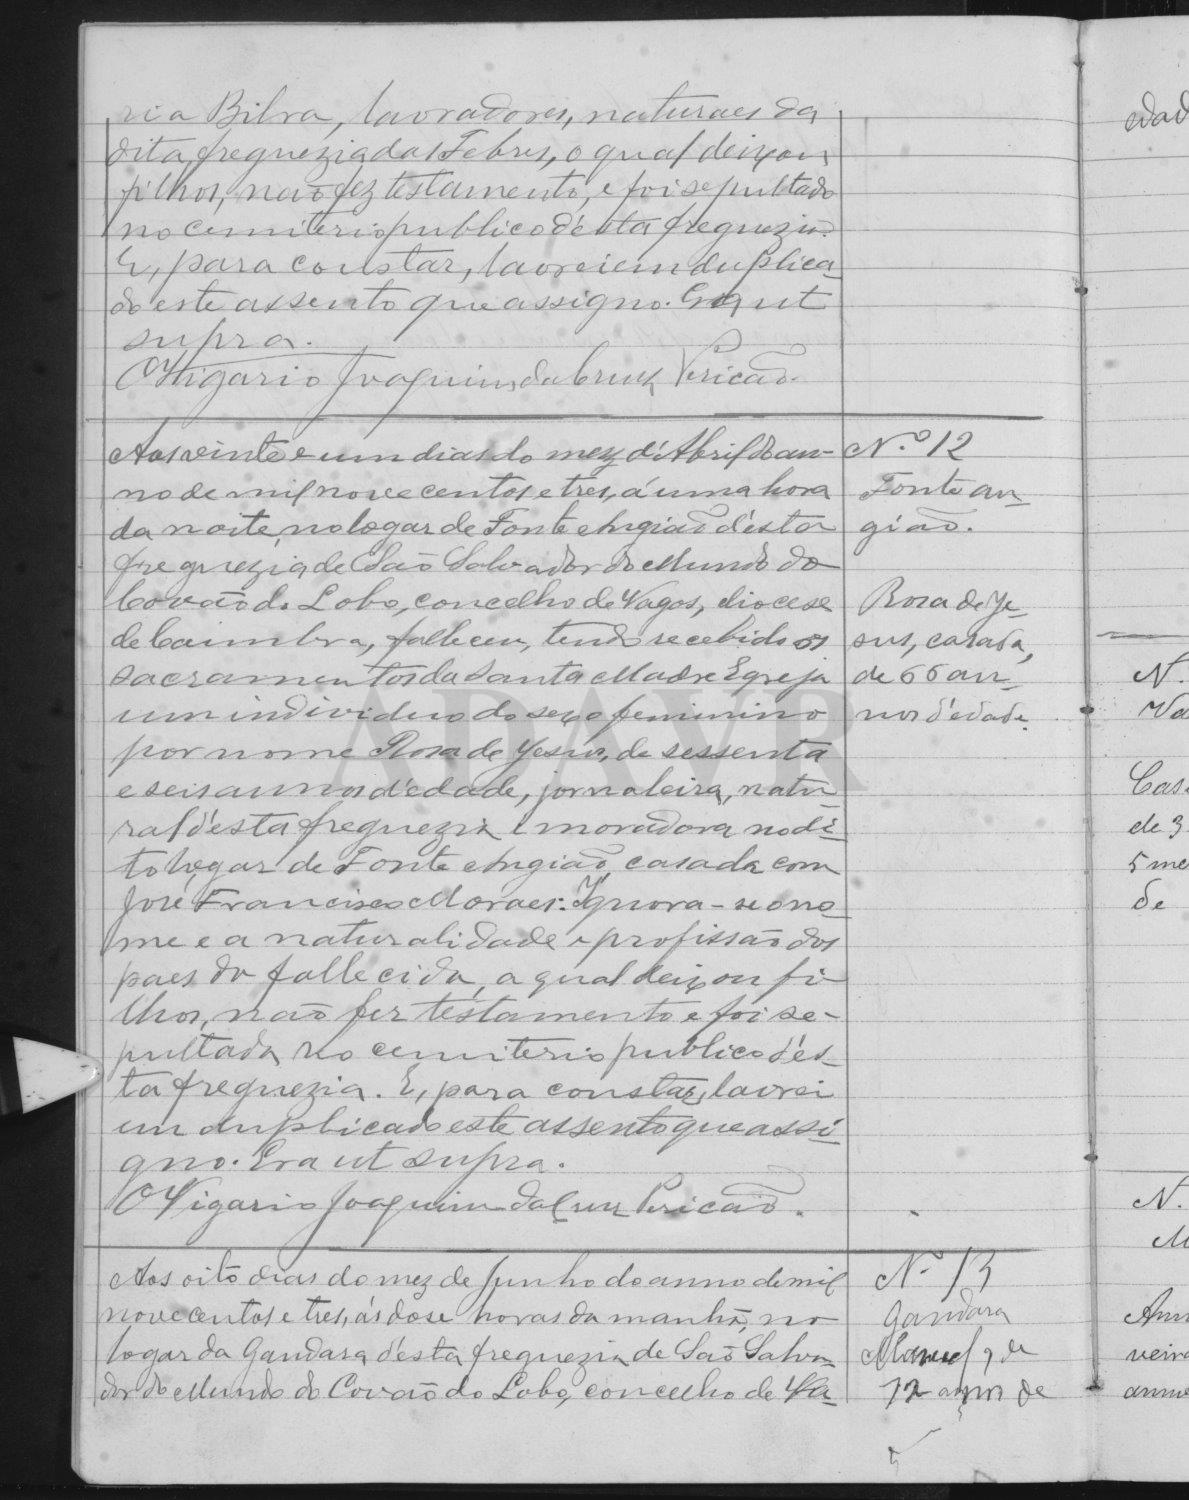 ria Bilva, lavradores, naturaes da
dita freguezia das Febres, o qual deixou
filhos, não fez testamento, e foi sepultado
no cemiterio publico désta freguezia.
E, para constar, lavrei em duplica
do este assento que assigno. Era ut
supra.
O Vigario Joaquim da Cruz Pericão.
Aos vinte e um dias do mez d'Abril do an-
no de mil nove centos e tres, á uma hora
da noite, no logar de Fonte Angião d'ésta
freguezia de São Salvador do Mundo do
Covão do Lobo, concelho de Vagos, diocese
de Coimbra, falleceu, tendo recebido os
sacramentos da Santa Madre Egreja
um individuo do sexo feminino
por nome Rosa de Jesus, de sessenta
e seis annos d'edade, jornaleira, natu
ral d'ésta freguezia e moradora no di
to logar de Fonte Angião, casada com
José Francisco Moraes. Ignora-se o no
me e a naturalidade e profissão dos
paes da fallecida, a qual deixou fi
lhos, não fez testamento e foi se-
pultada no cemiterio publico d'és
ta freguezia. E, para constar, lavrei
em duplicado este assento que assi
gno. Era ut supra.
O Vigario Joaquim da Cruz Pericão.
N.º 12
Fonte an
gião.
Rosa de Je
sus, casada,
de 66 an
nos d'edade.
Aos oito dias do mez de Junho do anno de mil
nove centos e tres, ás dose horas da manhã, no
logar da Gandara d'ésta freguezia de São Salva
dor do Mundo do Covão do Lobo, concelho de Va
N.º 13
Gandara
Manuel, de
72 annos de
edad
N.
Va
Cas
de 3
5 me
de
N.
M
Ann
veira
anno
ADAVR